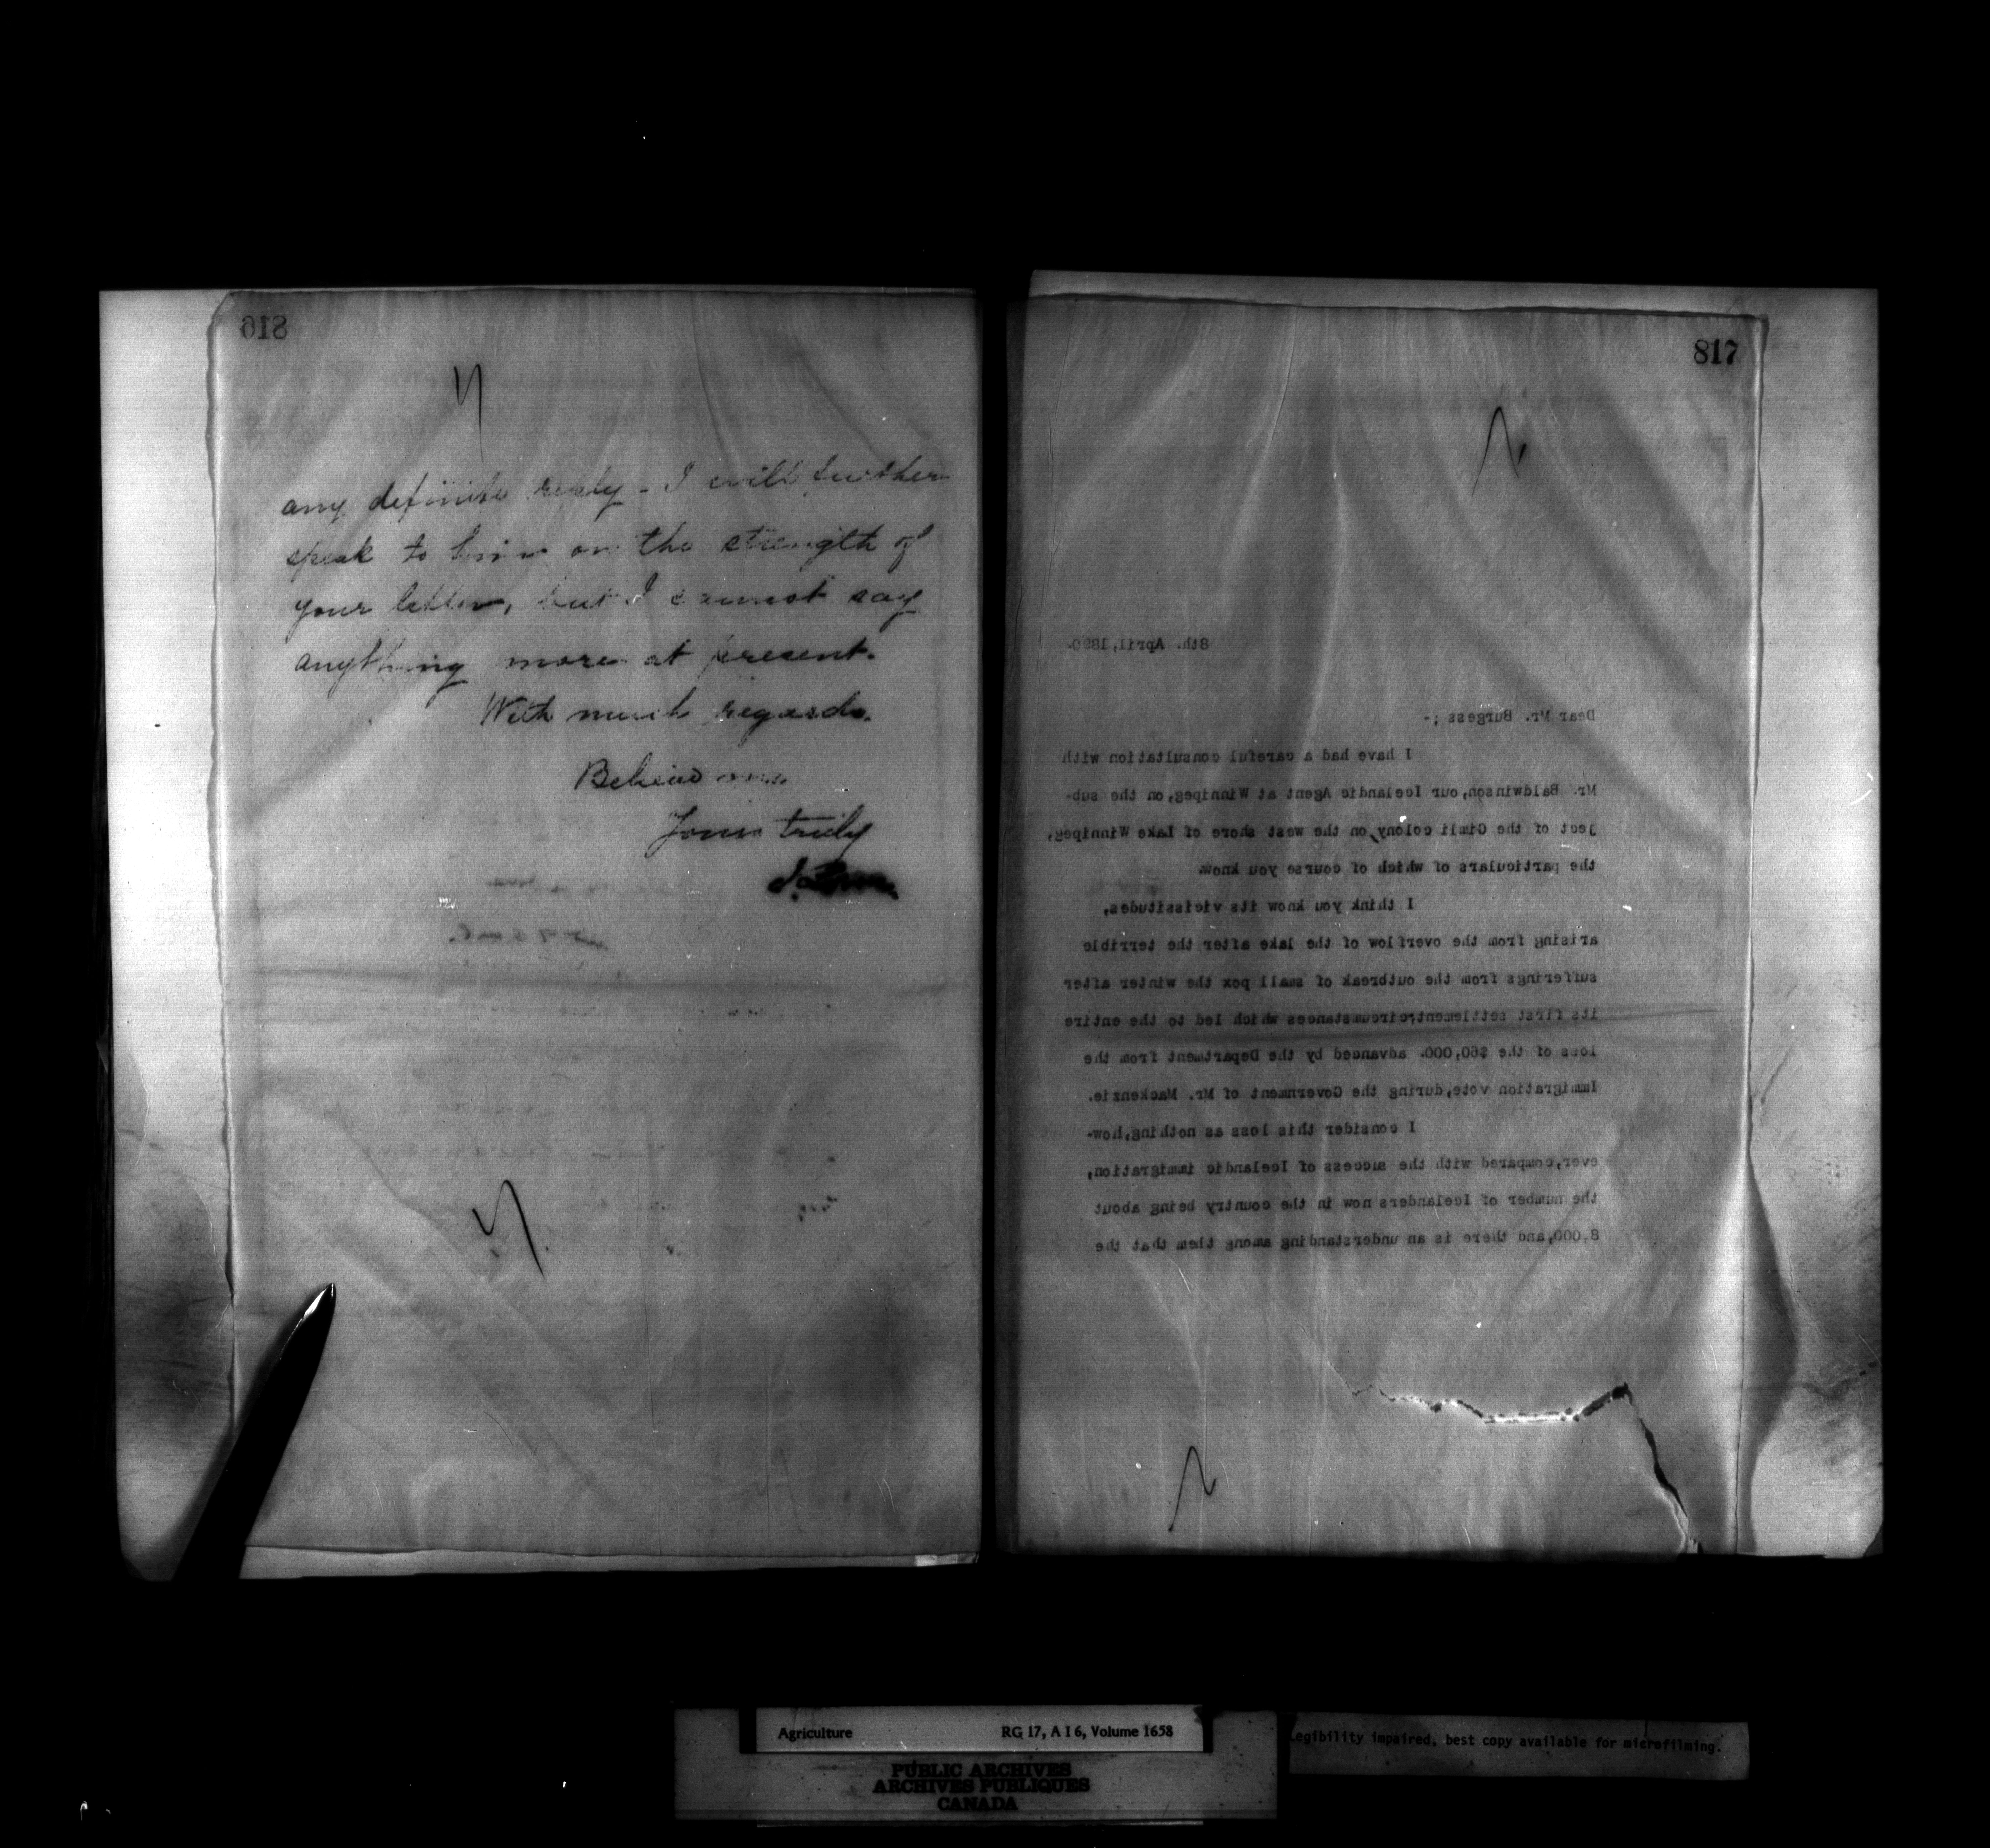 816
any definite reply - I will further
speak to him on the strength of
your letter, but I cannot say
anything more at present.
With much regards.
Believe me
Yours truly
817
8th. April, 1890.
Dear Mr. Burgess ;-
I have had a careful consultation with
Mr. Baldwinson,our Icelandic Agent at Winnipeg,on the sub-
ject of the Gimli colony,on the west shore of Lake Winnipeg,
the particulars of which of course you know.
I think you know its vicissitudes,
arising from the overflow of the lake after the terrible
sufferings from the outbreak of small pox the winter after
its first settlement;circumstances which led to the entire
loss of the $60,000. advanced by the Department from the
Immigration vote,during the Government of Mr. Mackenzie.
I consider this loss as nothing,how-
ever,compared with the success of Icelandic immigration,
the number of Icelanders now in the country being about
8,000,and there is an understanding among them that the
Agriculture RG 17, A I 6, Volume 1658
PUBLIC ARCHIVES
ARCHIVES PUBLIQUES
CANADA
Legibility impaired, best copy available for microfilming.